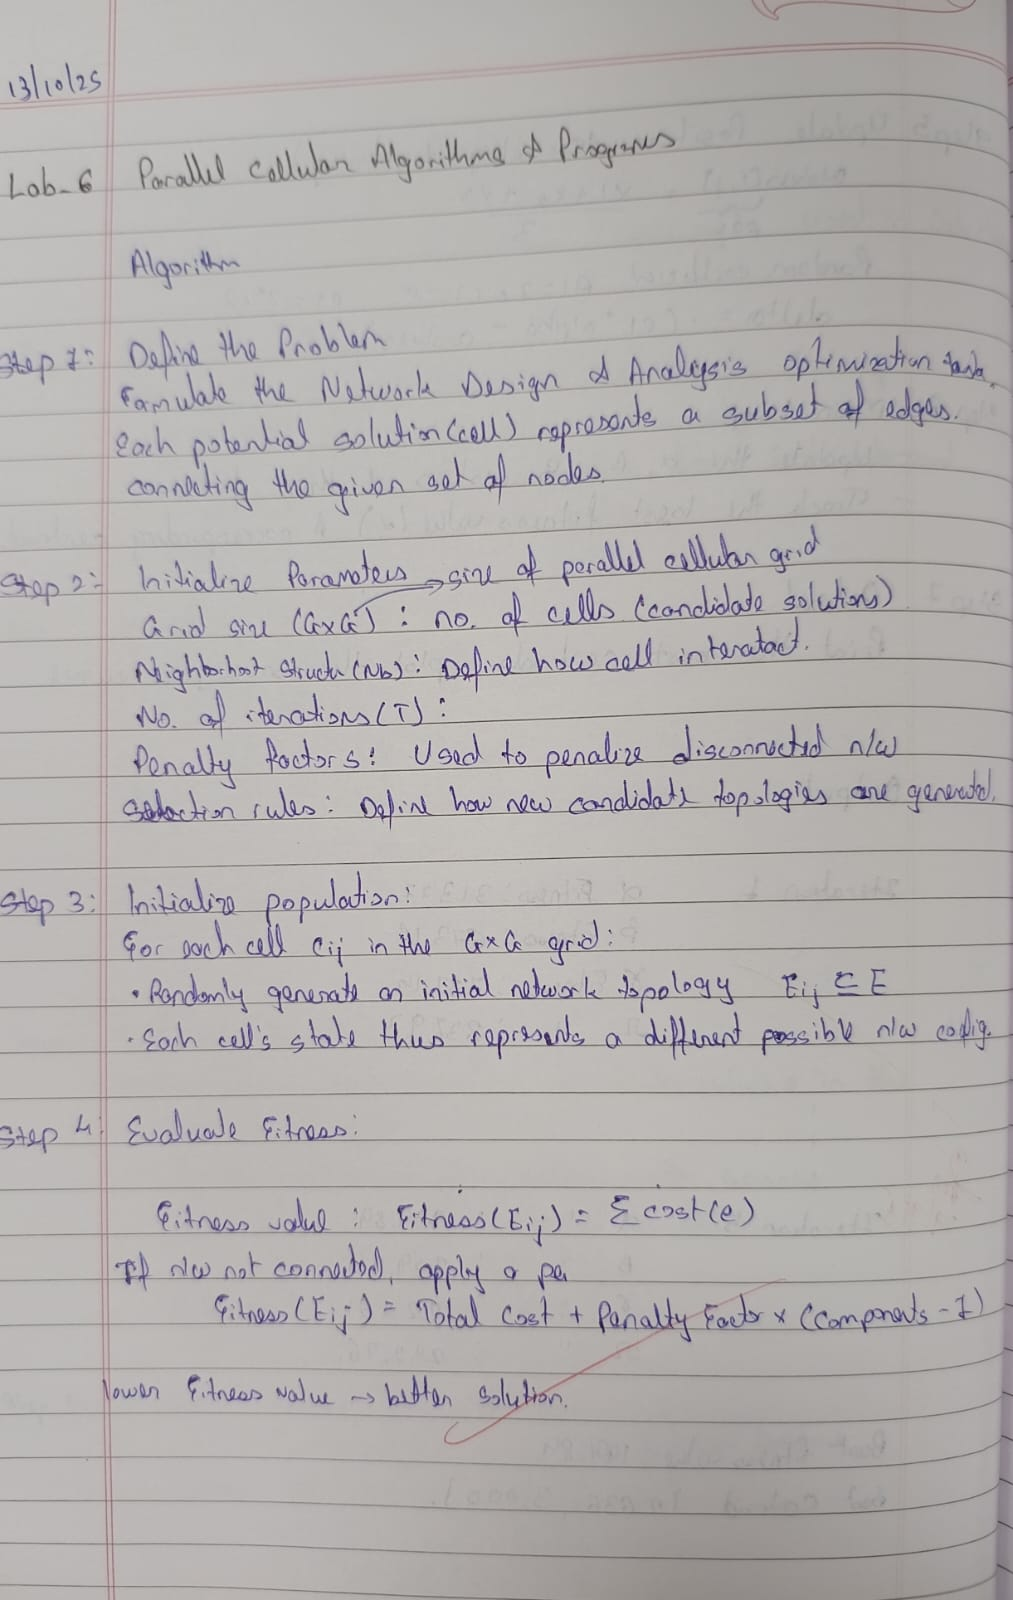 13/10/25
Lab-6 Parallel Cellular Algorithms & Programs
Algorithm
Step 1: Define the Problem
Famulate the Network Design & Analysis optimization task.
Each potential solution (cell) represents a subset of edges.
connecting the given set of nodes.
Step 2: Initialize Parameters → size of parallel cellular grid
Grid size (G×G) : no. of cells (candidate solutions)
Neighborhot Structu (Nb) : Define how cell interatact.
No. of iterations (T) :
Penalty factors : Used to penalize disconnected n/w
Selection rules : Define how new candidate topologies are generated.
Step 3: Initialize population:
For each cell Cij in the G×G grid:
• Randomly generate an initial network topology Eij ⊆ E
• Each cell's state thus represents a different possible n/w config.
Step 4: Evaluate Fitness:
Fitness value : Fitness (Eij) = Σ cost(e)
If n/w not connected, apply a pe
Fitness (Eij) = Total Cost + Penalty Factor × (Components - 1)
lower Fitness value → better solution.